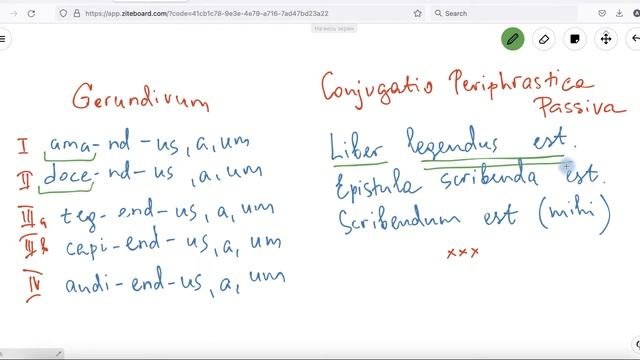 https://app.ziteboard.com/?code=41cb1c78-9e3e-4e79-a716-7ad47bd23a22
Search
На весь экран
Gerundivum
I ama-nd-us, a, um
II doce-nd-us, a, um
III a teg-end-us, a, um
III b capi-end-us, a, um
IV audi-end-us, a, um
Conjugatio Periphrastica
Passiva
Liber legendus est.
Epistula scribenda est.
Scribendum est (mihi)
xxx